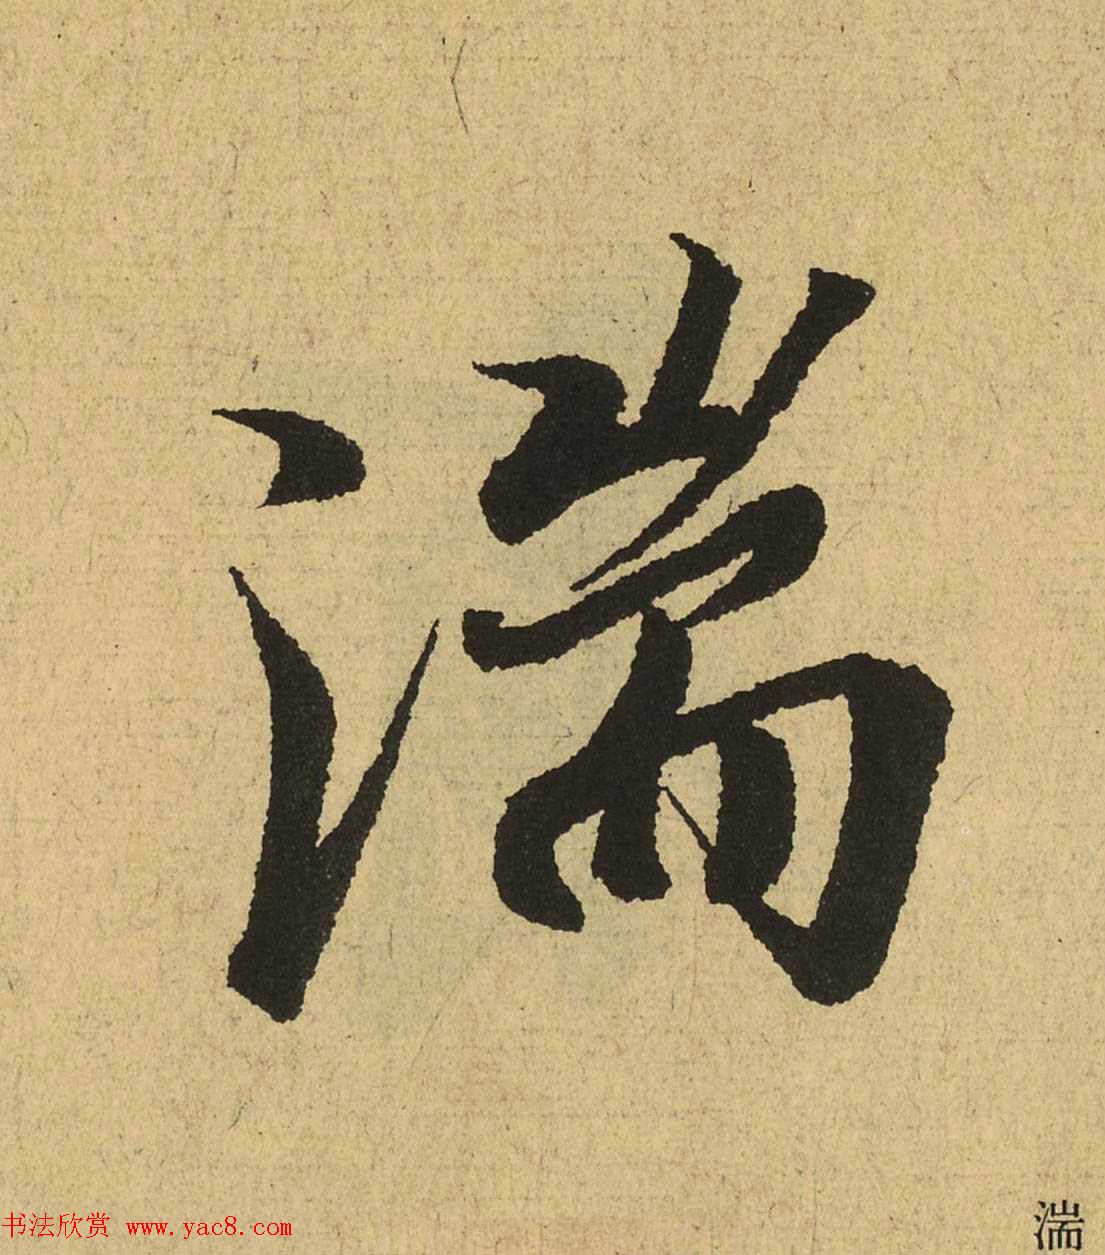 湍
书法欣赏 www.yac8.com
湍